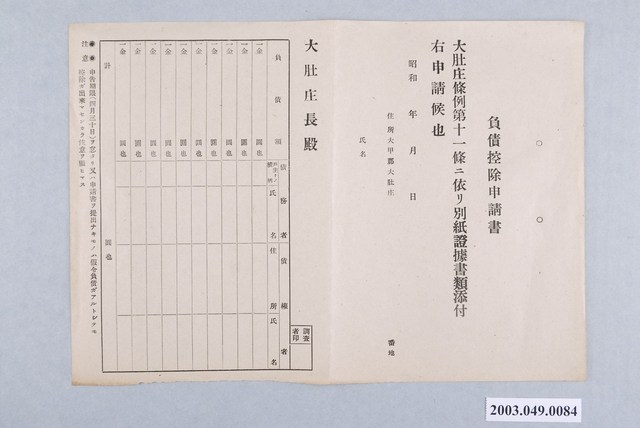 負債控除申請書
大肚庄條例第十一條ニ依リ別紙證據書類添付
右申請候也
昭和 年 月 日
住所大甲郡大肚庄
番地
氏名
大肚庄長殿
調査
者印
負債額
債務者
氏名
債權者
住所
氏名
一金 圓也
一金 圓也
一金 圓也
一金 圓也
一金 圓也
一金 圓也
一金 圓也
一金 圓也
一金 圓也
計 圓也
注意
申告期限(四月三十日)ヲ怠リ又ハ申請書ヲ提出ナキモノハ假令負債ガアルトシテモ
控除ガ出來マセンカラ注意ヲ願ヒマス
2003.049.0084